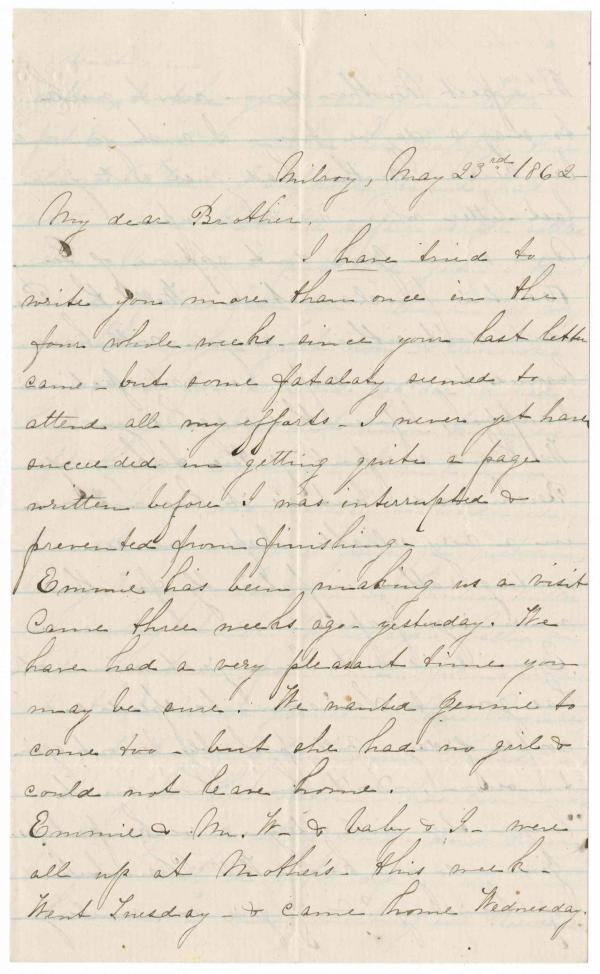 Milroy, May 23rd 1862-
My dear Brother.
I have tried to
write you more than once in the
four whole weeks - since your last letter
came - but some fatalaty seemed to
attend all my efforts - I never yet have
succeeded in getting quite a page
written before I was interrupted &
prevented from finishing -
Emmie has been making us a visit
Came three weeks ago - yesterday. We
have had a very pleasant time you
may be sure. We wanted Jennie to
come too - but she had no girl &
could not leave home.
Emmie & Mr. W- & baby & I - were
all up at Mother's - this week -
Went Tuesday - & came home Wednesday.